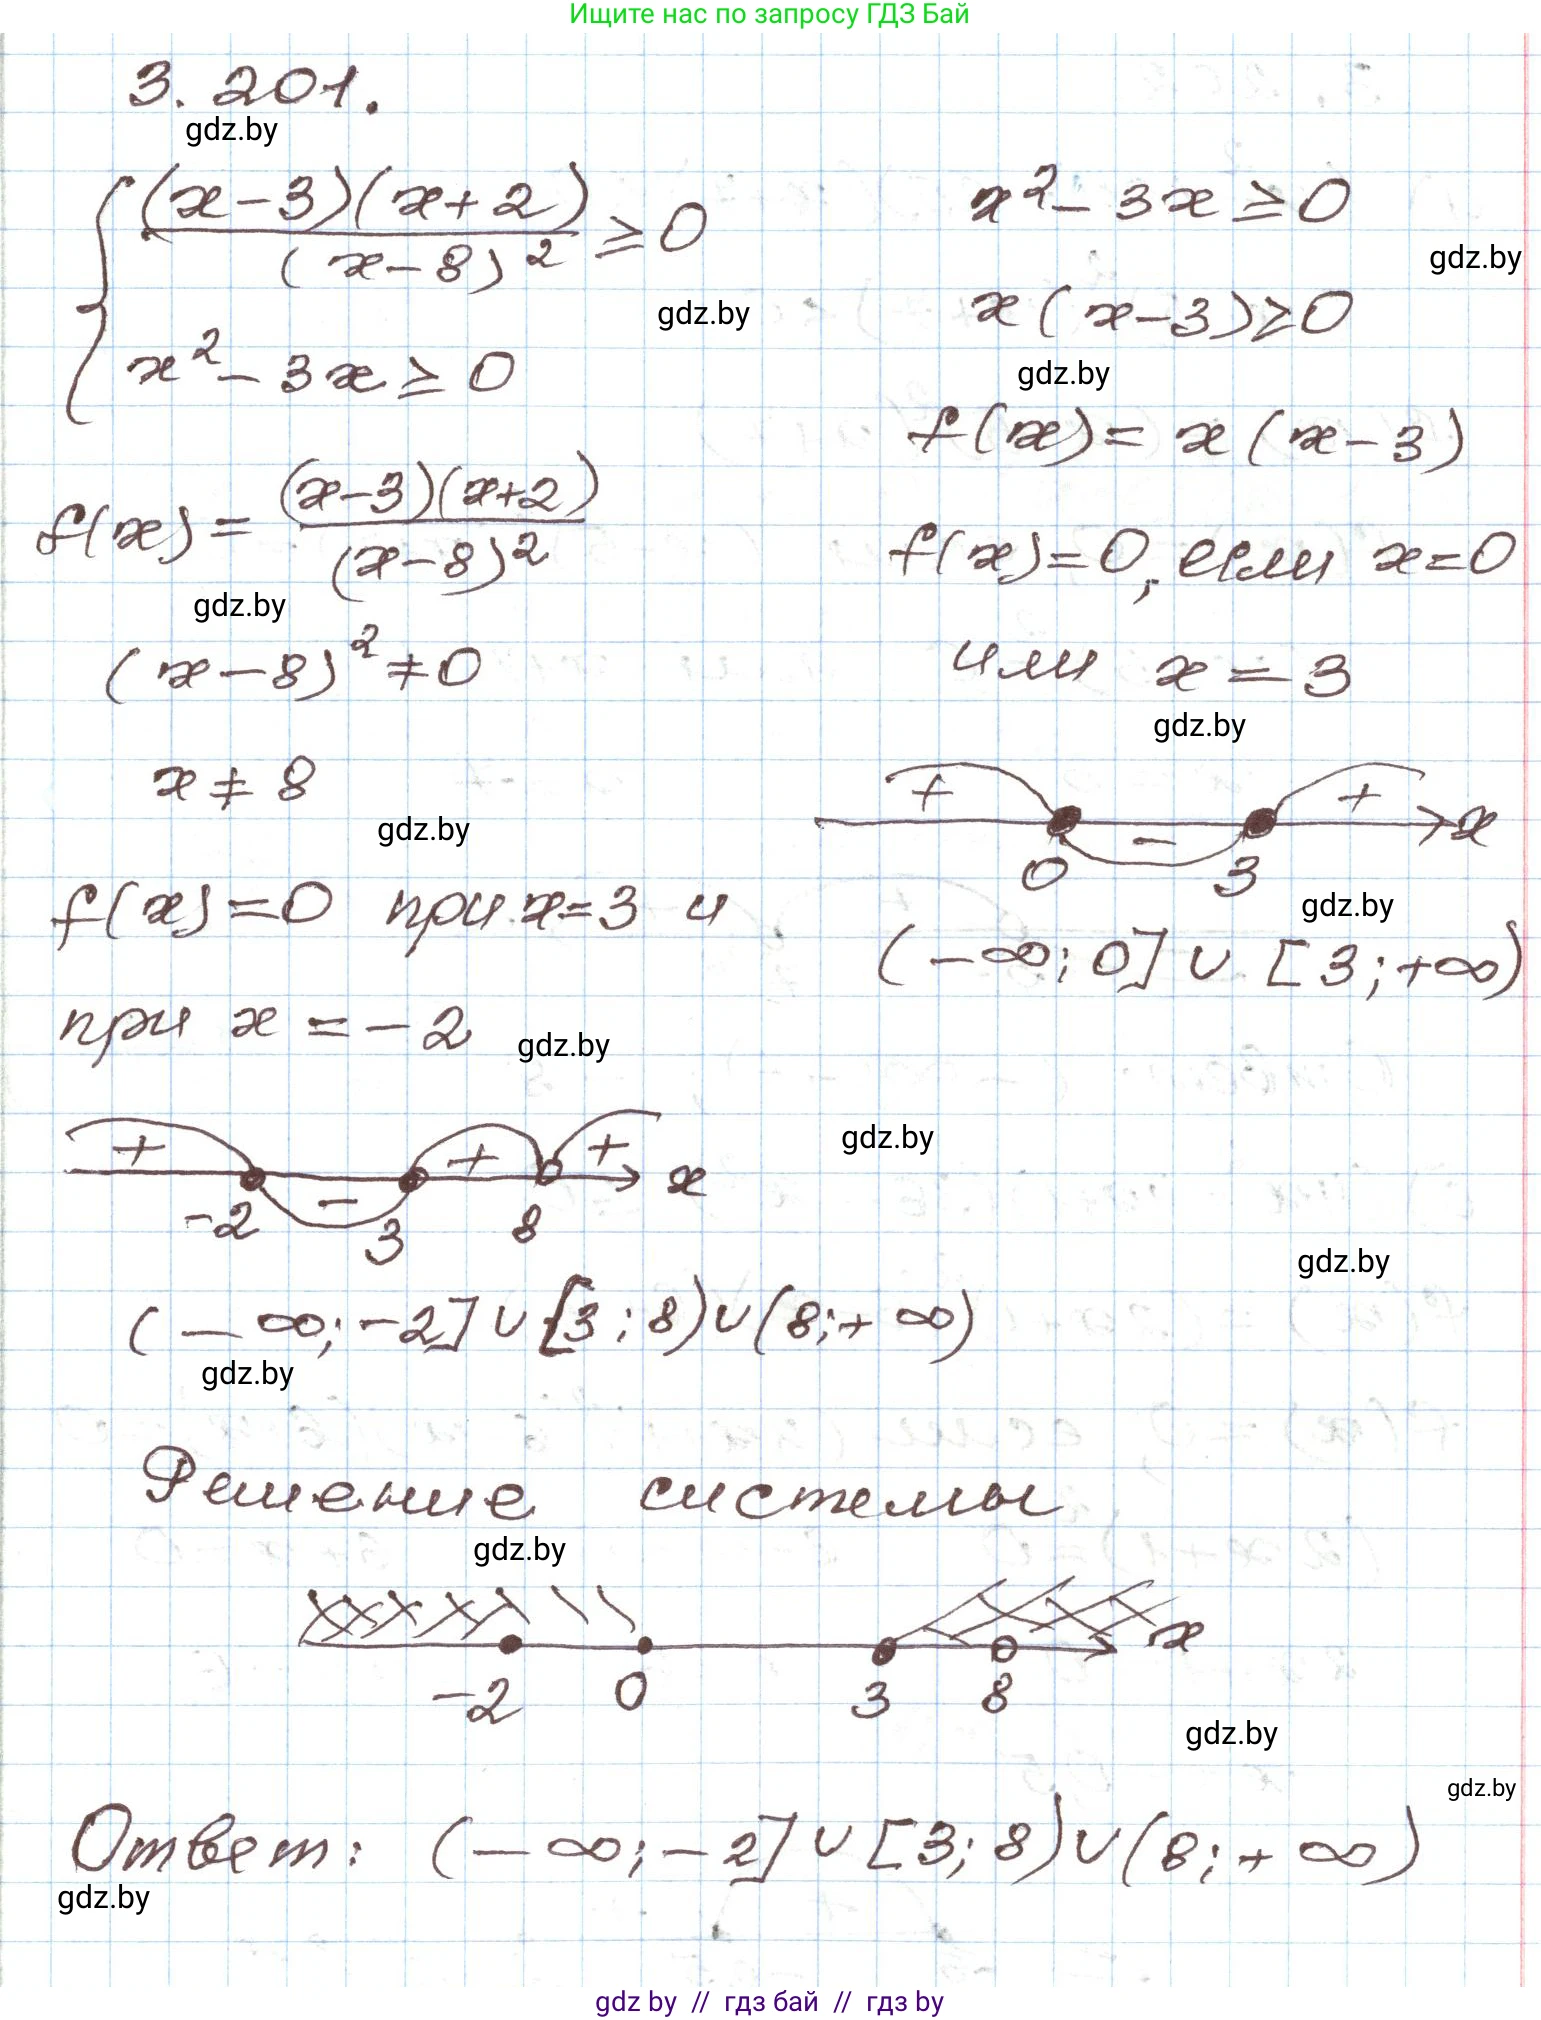 Ищите нас по запросу ГДЗ Бай
3.201.
gdz.by
{ (x-3)(x+2)/(x-8)² ≥ 0
gdz.by
x² - 3x ≥ 0
f(x) = (x-3)(x+2)/(x-8)²
gdz.by
(x-8)² ≠ 0
x ≠ 8
gdz.by
f(x) = 0 при x = 3 и
при x = -2
gdz.by
+ - + + x
-2 3 8
(-∞; -2] ∪ [3; 8) ∪ (8; +∞)
gdz.by
x² - 3x ≥ 0
gdz.by
x(x-3) ≥ 0
gdz.by
f(x) = x(x-3)
f(x) = 0, если x = 0
или x = 3
gdz.by
+ - + x
0 3
gdz.by
(-∞; 0] ∪ [3; +∞)
gdz.by
gdz.by
Решение системы
gdz.by
x
-2 0 3 8
gdz.by
gdz.by
Ответ: (-∞; -2] ∪ [3; 8) ∪ (8; +∞)
gdz.by
gdz by // гдз бай // гдз by